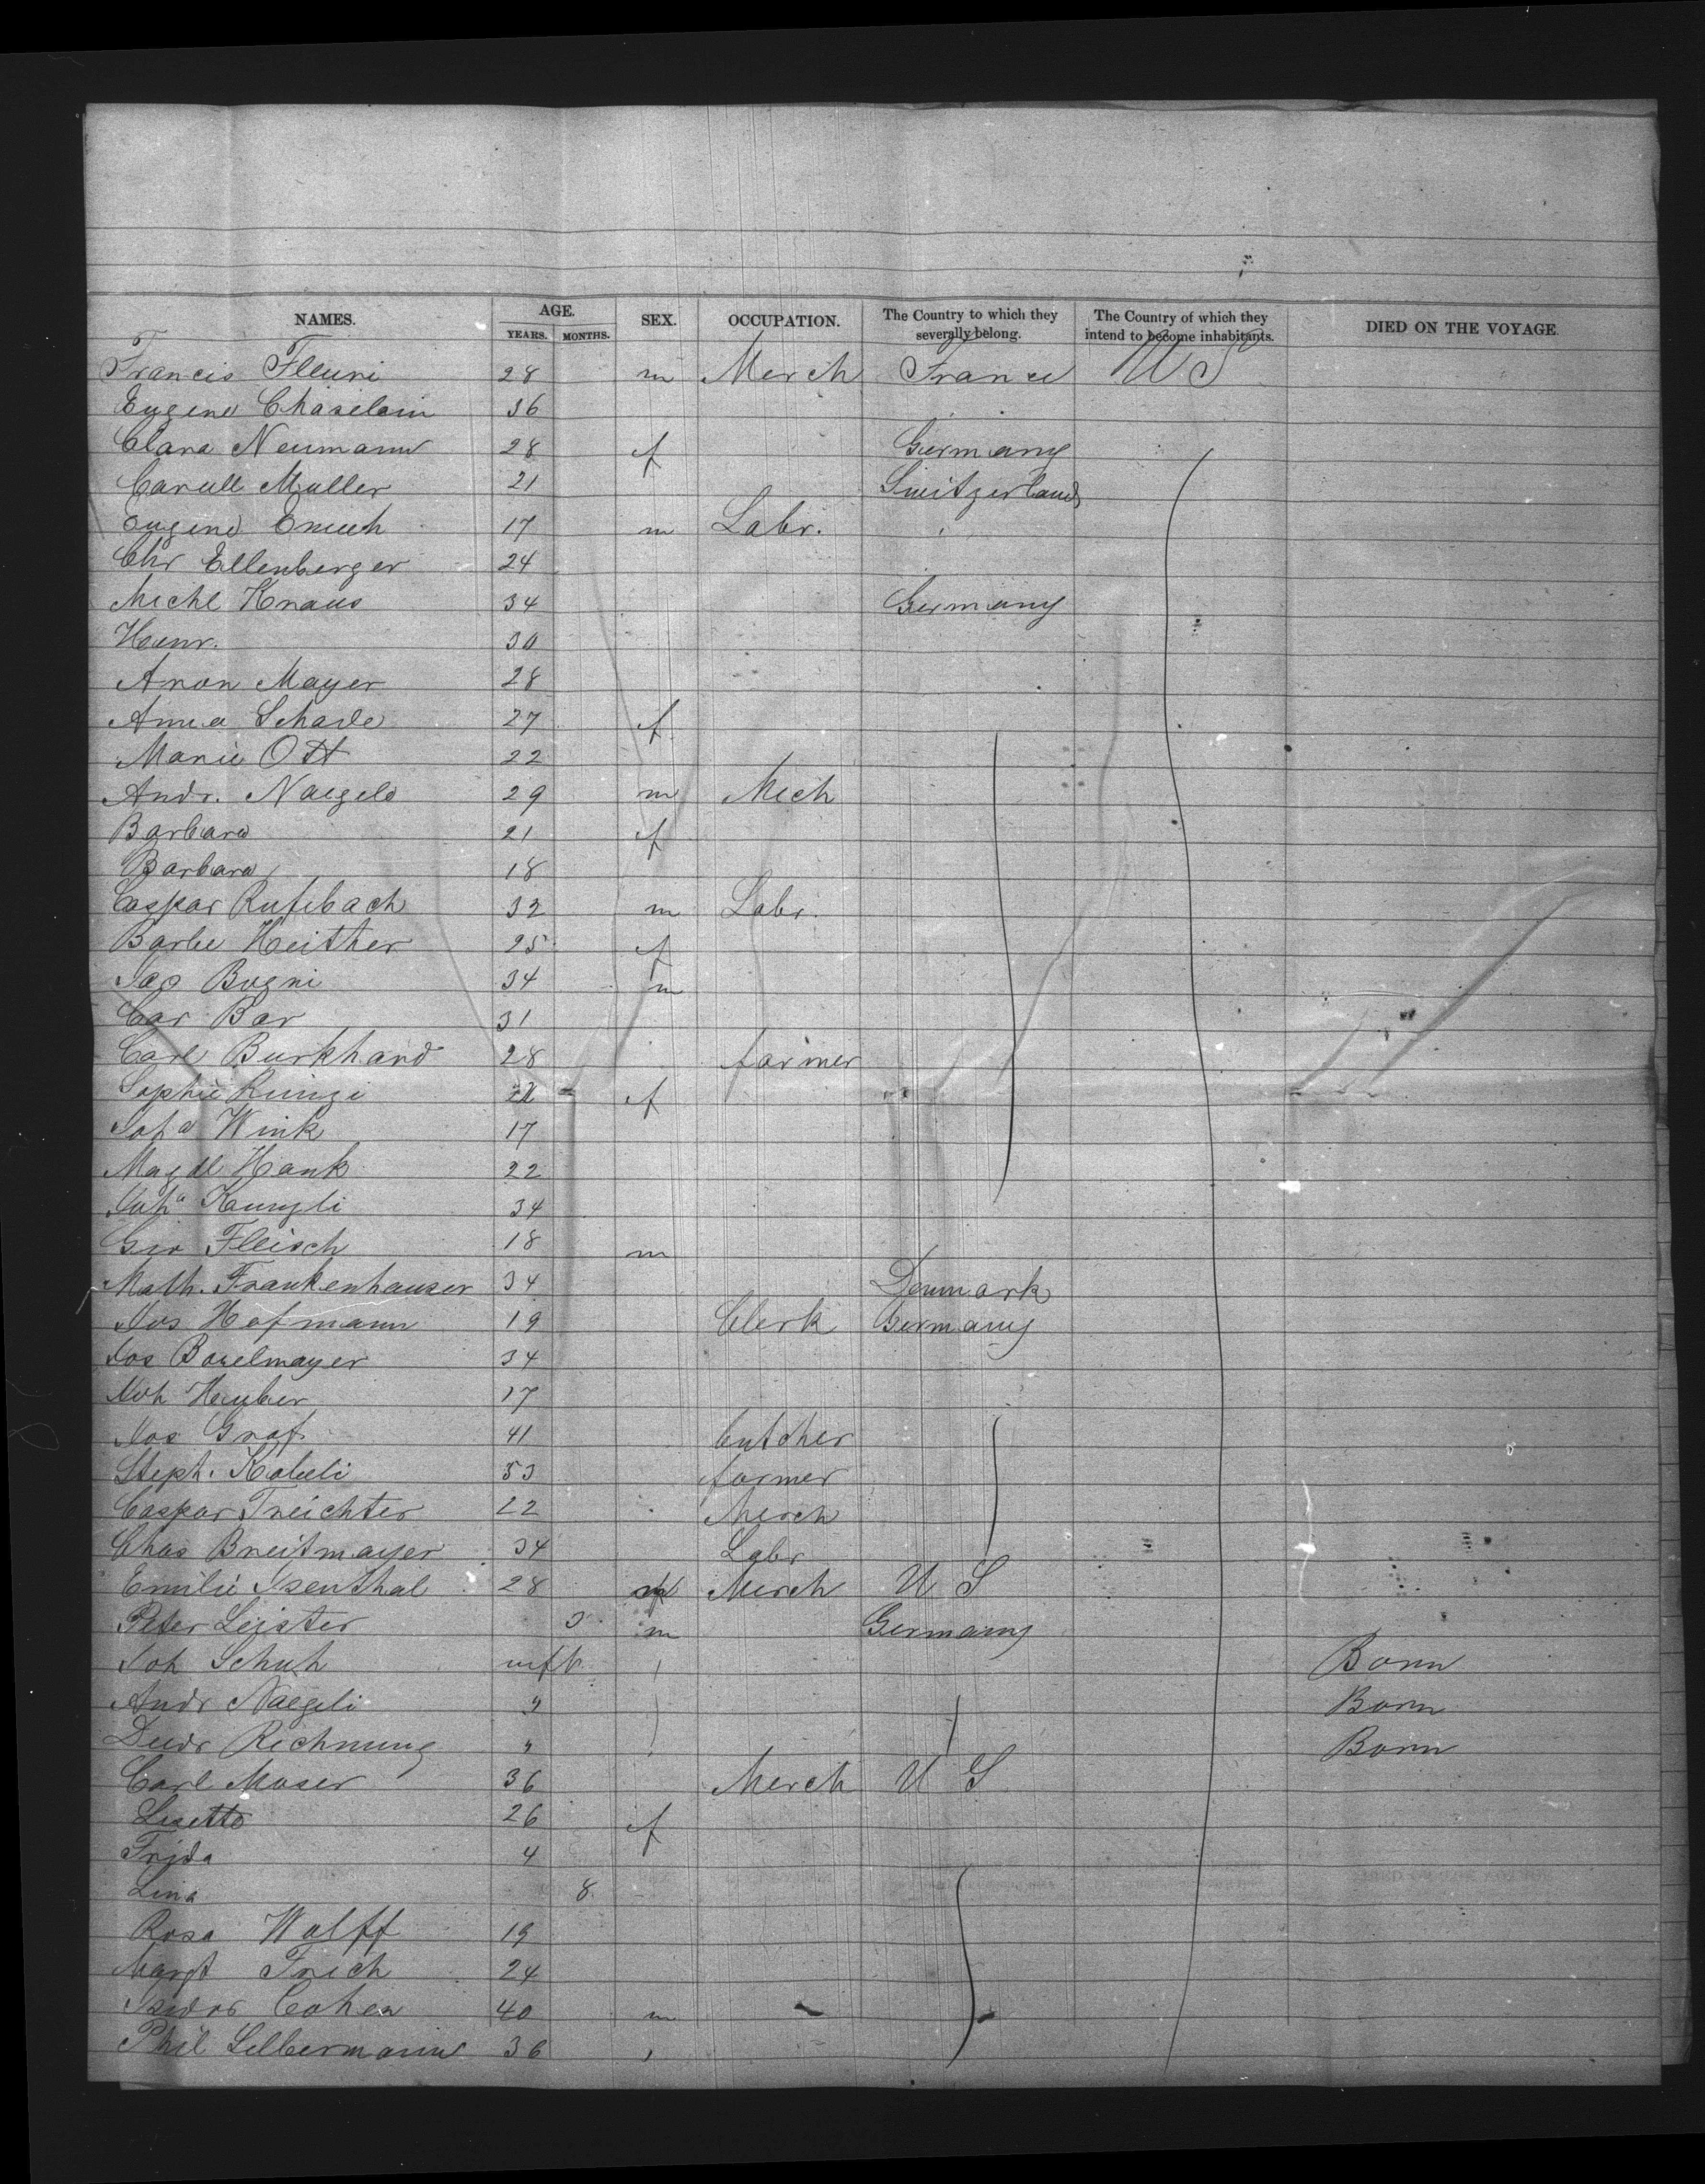 NAMES. AGE. YEARS. MONTHS. SEX. OCCUPATION. The Country to which they severally belong. The Country of which they intend to become inhabitants. DIED ON THE VOYAGE.
Francis Fleuri 28 m Merch France US
Eugene Chaselain 36
Clara Neumann 28 f Germany
Muller 21 Switzerland
Eugene 17 m Labr.
Chr Ellenberger 24
Michl Knaus 34 Germany
Heinr. 30
Aron Mayer 28
Anna Schade 27 f
Marie Ott 22
Andr. Naegele 29 m Mech
Barbara 21 f
Barbara 18
Caspar Rufibach 32 m Labr.
Barbe Heither 25 f
Jac Bugni 34 m
Car Bar 31
Carl Burkhard 28 farmer
Sophie f
Wink 17
Magdl Hank 22
Kungli 34
Geo Fleisch 18 m
Math. Frankenhauser 34 Denmark
Jos Hofmann 19 Clerk Germany
Jos 34
Joh Huber 17
Jos Graf 41 butcher
Steph. Kobeli 53 farmer
Caspar Treichter 22 Merch
Chas Breitmayer 34 Labr
Emilie Isenthal 28 f Merch U S
Peter Leister 3 m Germany
Joh Schuh inft Born
Andr Naegeli " Born
Richnung " Born
Carl Moser 36 Merch U S
Lisette 26 f
Frida 4
Lina 8
Rosa Wolff 19
Margt Frich 24
Isidor Cohen 40 m
Phil Silbermann 36